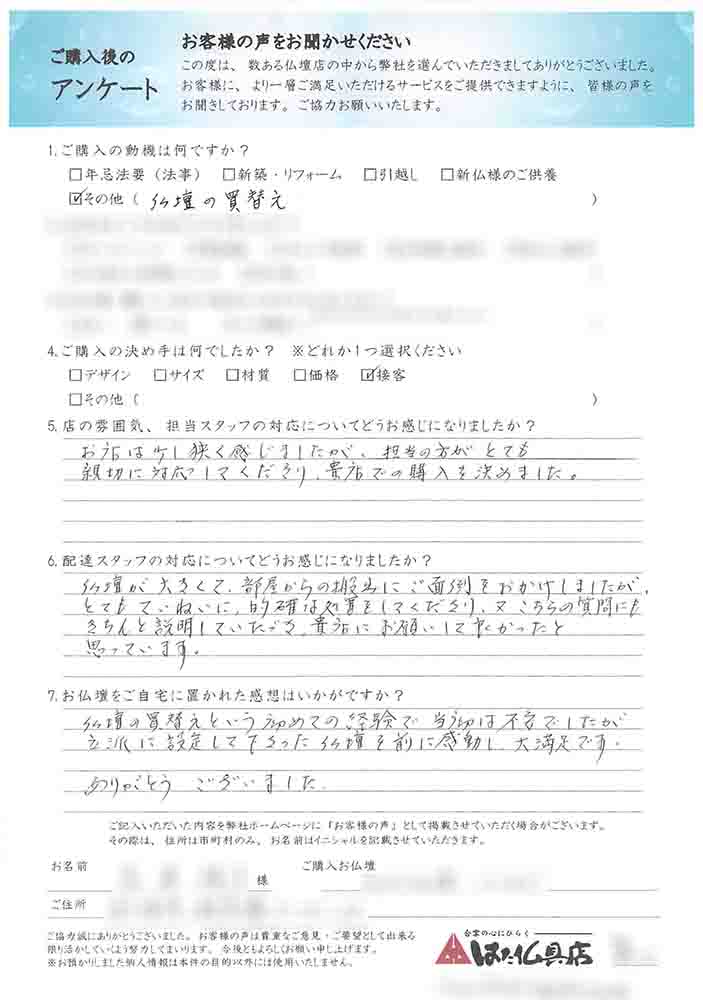 ご購入後の
アンケート
お客様の声をお聞かせください
この度は、数ある仏壇店の中から弊社を選んでいただきましてありがとうございました。
お客様に、より一層ご満足いただけるサービスをご提供できますように、皆様の声を
お聞きしております。ご協力お願いいたします。
1.ご購入の動機は何ですか？
□年忌法要（法事） □新築・リフォーム □引越し □新仏様のご供養
☑その他（ 仏壇の買替え ）
4.ご購入の決め手は何でしたか？ ※どれか1つ選択ください
□デザイン □サイズ □材質 □価格 ☑接客
□その他（ ）
5.店の雰囲気、担当スタッフの対応についてどうお感じになりましたか？
お店は少し狭く感じましたが、担当の方がとても
親切に対応してくださり、貴店での購入を決めました。
6.配達スタッフの対応についてどうお感じになりましたか？
仏壇が大きくて、部屋からの搬出にご面倒をおかけしましたが、
とてもていねいに、的確な処置をしてくださり、又こちらの質問にも
きちんと説明していただき、貴店にお願いして良かったと
思っています。
7.お仏壇をご自宅に置かれた感想はいかがですか？
仏壇の買替えという初めての経験で当初は不安でしたが
立派に設定して下さった仏壇を前に感動し、大満足です。
ありがとうございました。
ご記入いただいた内容を弊社ホームページに『お客様の声』として掲載させていただく場合がございます。
その際は、住所は市町村のみ、お名前はイニシャルを記載させていただきます。
お名前 様 ご購入お仏壇
ご住所
ご協力誠にありがとうございました。お客様の声は貴重なご意見・ご要望として出来る
限り活かしていくよう努力してまいります。今後ともよろしくお願い申し上げます。
※お預かりしました個人情報は本件の目的以外には使用いたしません。
合掌の心にひらく
はた仏具店